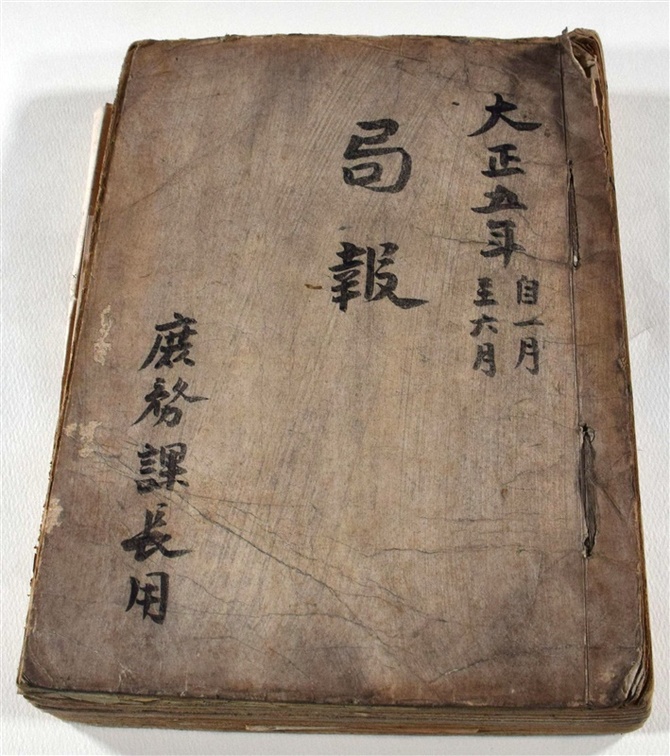 大正五年
自一月
至六月
局報
庶務課長用